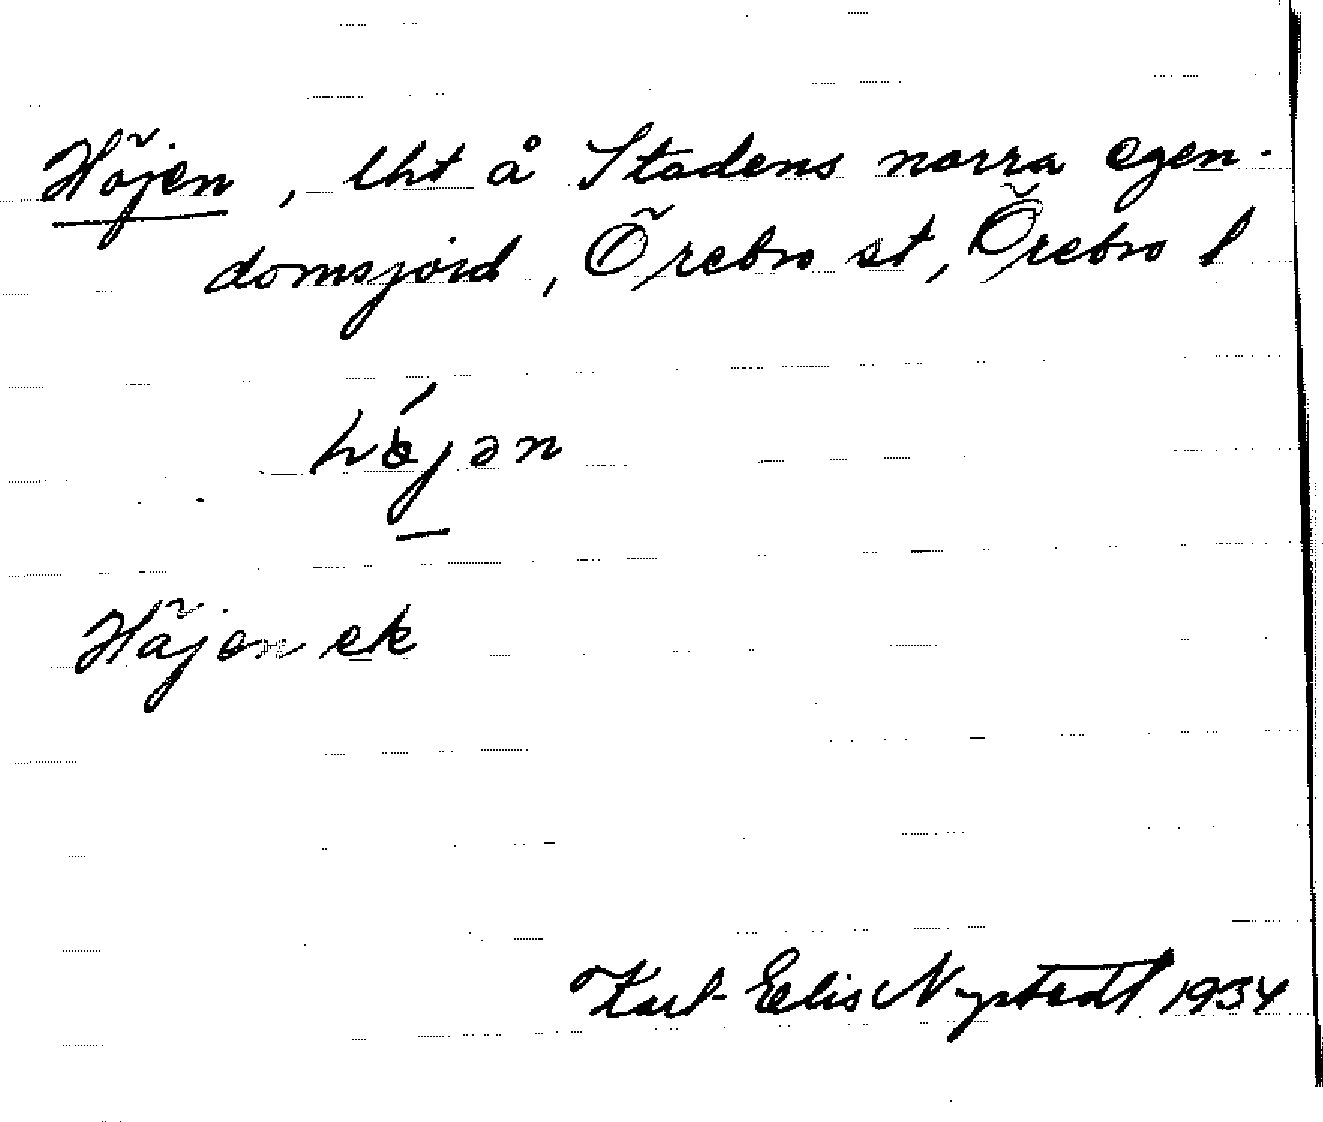 Höjen, lht å Stadens norra egen-
domsjord, Örebro st, Örebro l
Höjen ek
Karl-Elis Nystedt 1934